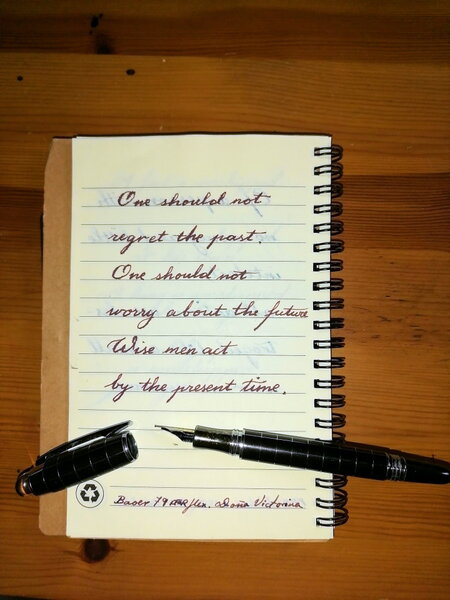 One should not
regret the past.
One should not
worry about the future
Wise men act
by the present time.
Baoer 79 flex. Doña Victorina